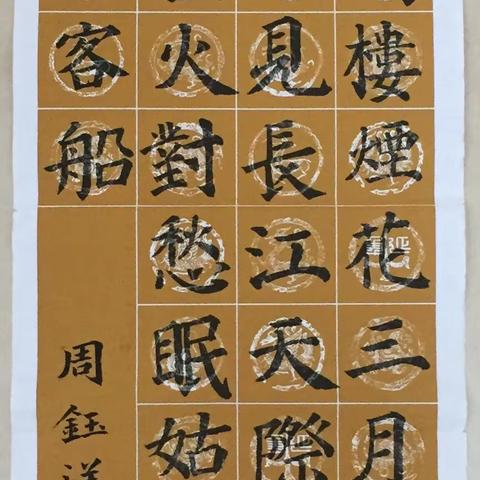 樓煙花三月
見長江天際
火對愁眠姑
客船
周鈺